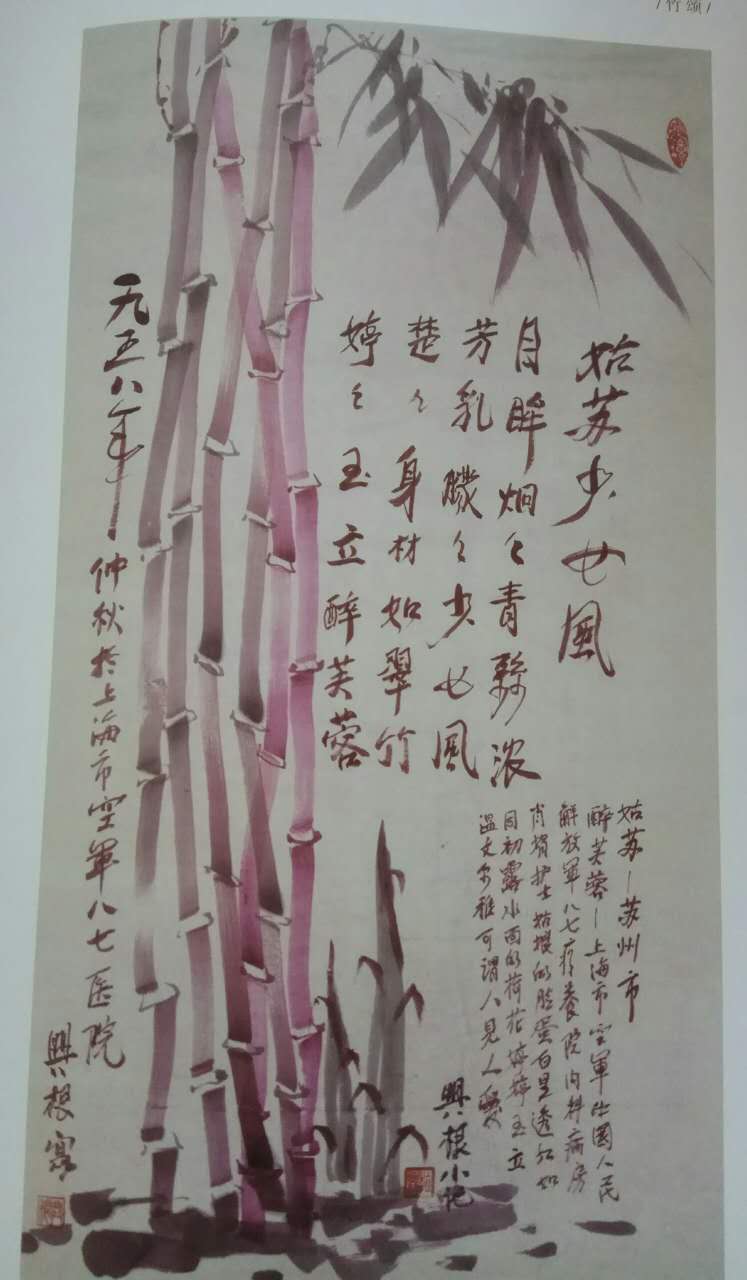 /竹颂/
姑苏少女风
目眸炯々青丝浓
芳乳朦々少女风
楚々身材如翠竹
婷々玉立醉芙蓉
姑苏—苏州市
醉芙蓉—上海市空軍中国人民
解放軍八七疗养院内科病房
肖娟护士姑嫂的脸蛋白里透红如
同初露水面的荷花婷婷玉立
温文尔雅可谓人見人爱
興根小记
一九五八年仲秋於上海市空軍八七医院
興根寫